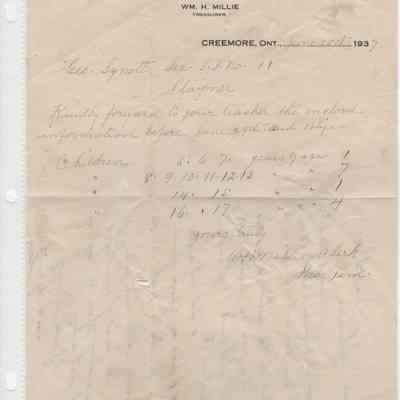 WM. H. MILLIE
TREASURER
CREEMORE, ONT. June 1937
Geo. Synott Sec S.S. No. 11
Stayner
Kindly forward to your teacher the enclosed
information before June and
Children 5. 6 7. years of age 1
" 8. 9. 10. 11. 12. 13 " " 7
" 14. 15 " " 1
" 16. 17 " " 4
Yours truly
Clerk